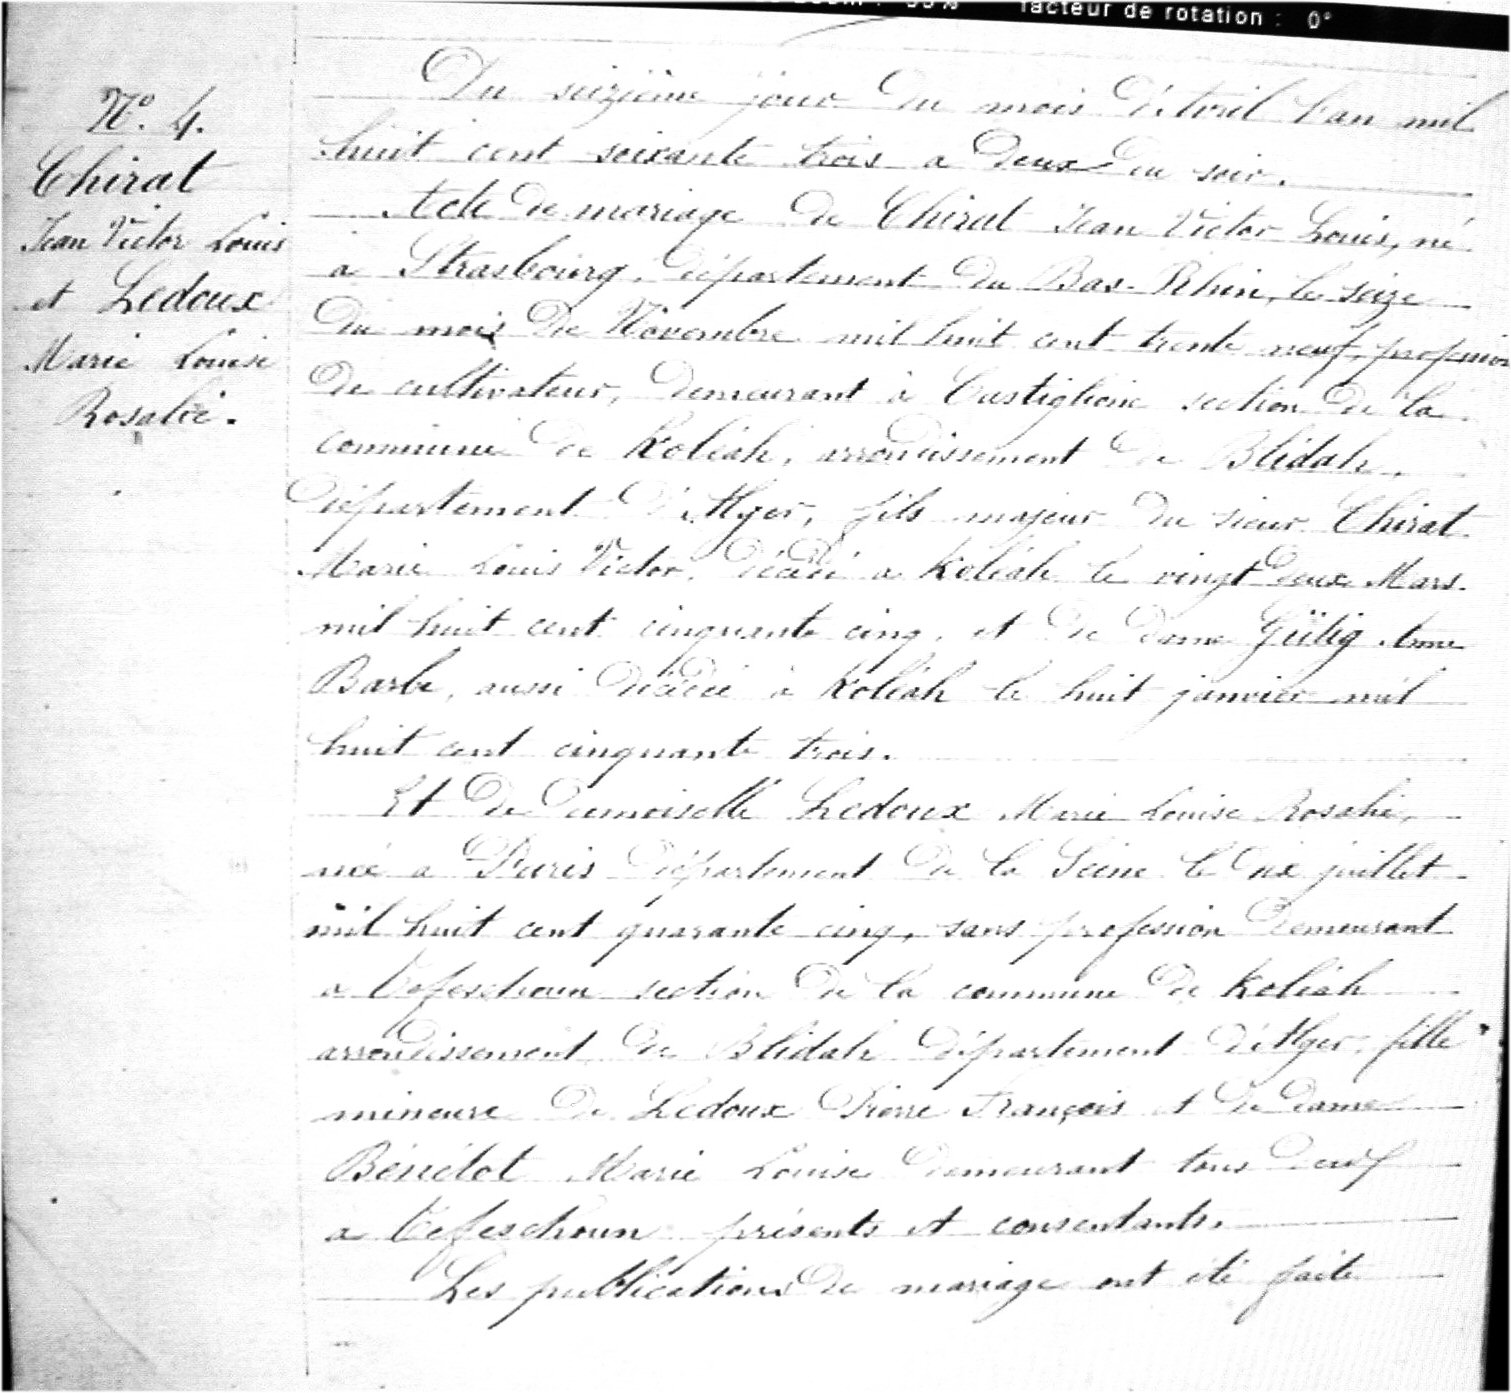 facteur de rotation : 0°
N°. 4.
Chirat
Jean Victor Louis
et Ledoux
Marie Louise
Rosalie.
Du seizième jour du mois d'Avril l'an mil
huit cent soixante trois a deux du soir.
Acte de mariage de Chirat Jean Victor Louis, né
à Strasbourg, département du Bas-Rhin, le seize
du mois de Novembre mil huit cent trente neuf, profession
de cultivateur, demeurant à Castiglione section de la
commune de Koléah, arrondissement de Blidah,
département d'Alger, fils majeur du sieur Chirat
Marie Louis Victor, décédé a Koléah le vingt deux Mars
mil huit cent cinquante cinq, et de dame Gülig Anne
Barbe, aussi décédée à Koléah le huit janvier mil
huit cent cinquante trois.
Et de Demoiselle Ledoux Marie Louise Rosalie,
née a Paris département de la Seine le dix juillet
mil huit cent quarante cinq, sans profession demeurant
a Tefeschoun section de la commune de Koléah
arrondissement de Blidah département d'Alger, fille
mineure de Ledoux Pierre François et de dame
Bénétot Marie Louise demeurant tous deux
a Tefeschoun présents et consentants.
Les publications de mariage ont été faite